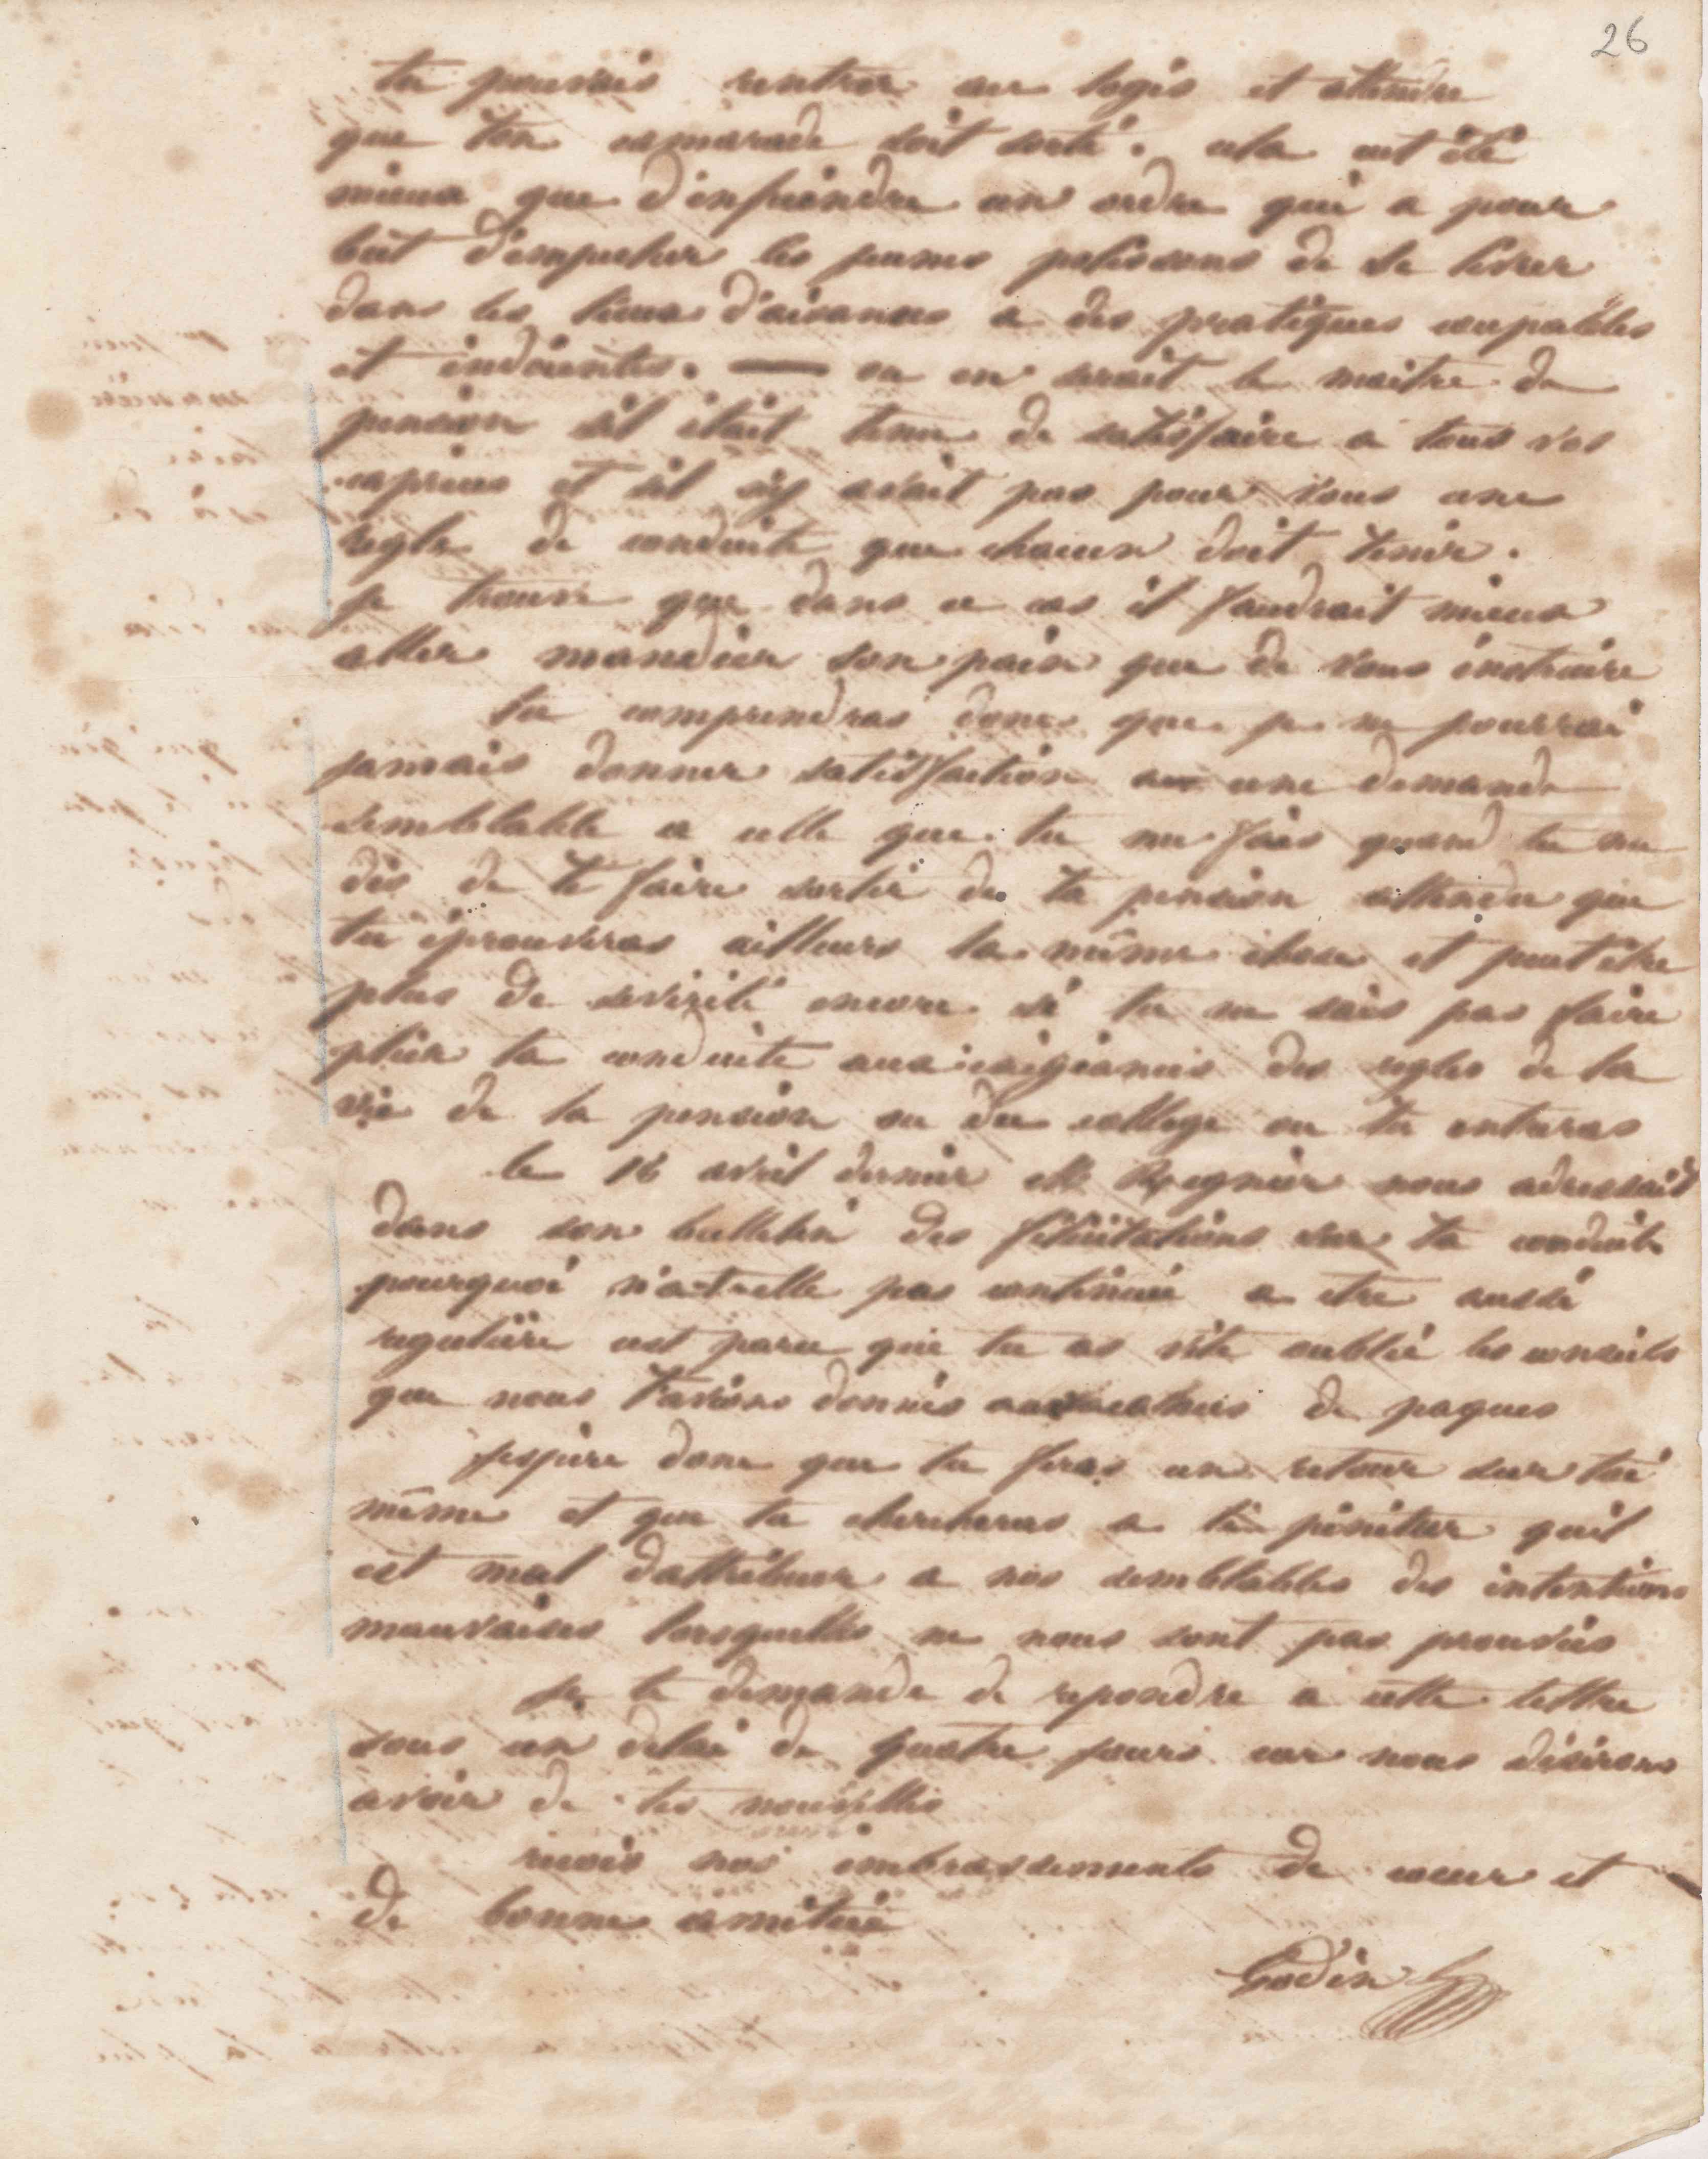 26
tu pouvais rentrer au logis et attendre
que ton camarade soit sorti. cela eut été
mieux que d'enfreindre un ordre qui a pour
but d'empecher les jeunes polissons de se livrer
dans les lieux d'aisances a des pratiques coupables
et indécentes. — ou en serait le maitre de
pension sil était tenu de satisfaire a tous vos
caprices et sil ny avait pas pour vous une
regle de conduite que chacun doit tenir.
je trouve que dans ce cas il faudrait mieux
aller mandier son pain que de vous instruire
tu comprendras donc que je ne pourrai
jamais donner satisfaction a une demande
semblable a celle que tu me fais quand tu me
dis de te faire sortir de ta pension attendu que
tu éprouveras ailleurs la même chose et peut être
plus de sévérité encore si tu ne sais pas faire
plier ta conduite aux exigeances des regles de la
vie de la pension ou du collège ou tu entreras
le 16 avril dernier Mr Regnier nous adressait
dans son bulletin des félicitations sur ta conduite
pourquoi n'a-t-elle pas continué a etre aussi
regulière cest parce que tu as vite oublié les conseils
que nous t'avions donnés aux vacances de paques
jespère donc que tu feras un retour sur toi
même et que tu chercheras a te pénétrer quil
est mal dattribuer a nos semblables des intentions
mauvaises lorsquelles ne nous sont pas prouvées
je te demande de repondre a cette lettre
sous un delai de quatre jours car nous désirons
avoir de tes nouvelles
reçois nos embrassements de coeur et
de bonne amitié
Godin